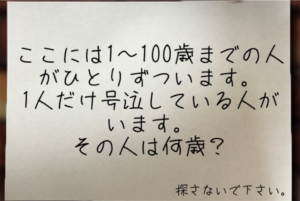 ここには1～100歳までの人
がひとりずついます。
1人だけ号泣している人が
います。
その人は何歳？
探さないで下さい。